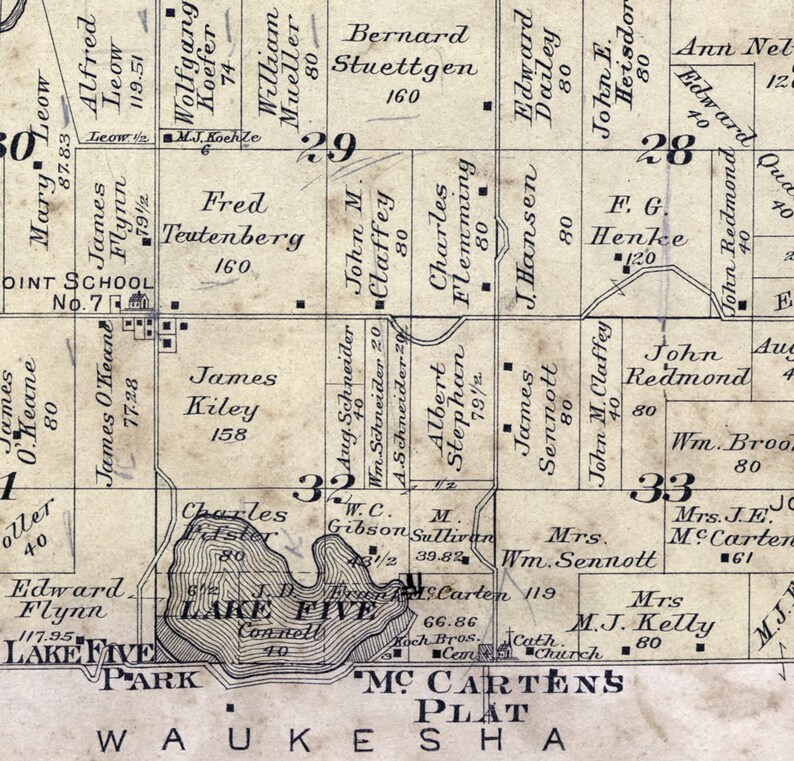 Alfred
Leow
119.51
Wolfgang
Koefer
74
William
Mueller
80
Bernard
Stuettgen
160
Edward
Dailey
80
John E.
Heisdor
80
Ann Nel
12
Edward
40
Mary Leow
87.83
Leow. 1/2
M.J. Koehle
6
30
29
28
James
Flynn
79 1/2
Fred
Teutenberg
160
John M
Claffey
80
Charles
Flemming
80
J. Hansen
80
F. G.
Henke
120
John Redmond
40
Qua
40
2
E
OINT SCHOOL
No. 7
James
O'Keane
80
James O'Keane
77.28
James
Kiley
158
Aug. Schneider
40
Wm. Schneider 20
A. Schneider 20
Albert
Stephan
79 1/2
1/2
James
Sennott
80
John M. Claffey
40
John
Redmond
80
Aug
4
Wm. Broo
80
1
32
33
oller
40
Charles
Pilster
80
W. C.
Gibson
43 1/2
M.
Sullivan
39.82
Mrs.
Wm. Sennott
119
Mrs. J.E.
McCarten
61
JO
Edward
Flynn
117.95
6 1/2
J. D.
Connell
40
Frank McCarten
66.86
LAKE FIVE
Koch Bros.
3
Cem
Cath.
Church
Mrs
M.J. Kelly
80
M.J. F
LAKE FIVE
PARK
Mc CARTENS
PLAT
WAUKESHA